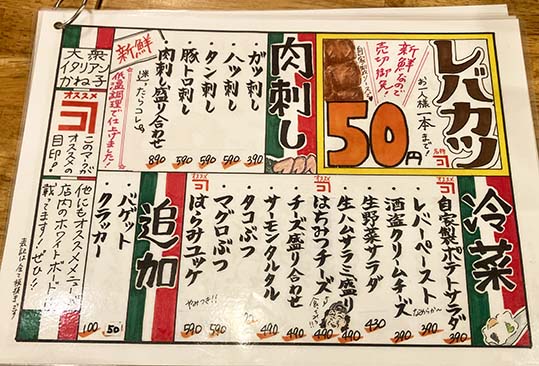 レバカツ
お一人様一本まで!
名物
自家製ソース
新鮮なので
売切御免!
50円
肉刺し
ガツ刺し 390
ハツ刺し 590
タン刺し 590
豚トロ刺し 590
肉刺し盛り合わせ 890
迷ったらコレ!
新鮮
低温調理で仕上げました!
大衆
イタリアン
かね子
オススメ
このマークが
オススメの
目印!!
冷菜
オススメ
自家製ポテトサラダ 390
レバーペースト 390
なめらか〜
酒盗クリームチーズ 390
生野菜サラダ 430
生ハムサラミ盛り 490
オススメ
はちみつチーズ 490
チーズ盛り合わせ 490
サーモンタルタル 490
タコぶつ
マグロぶつ 590
オススメ
はらみユッケ 590
やみつき!!
追加
バゲット 50
クラッカー 100
他にもオススメメニュー
店内のホワイトボードに
載ってます!ぜひ!!